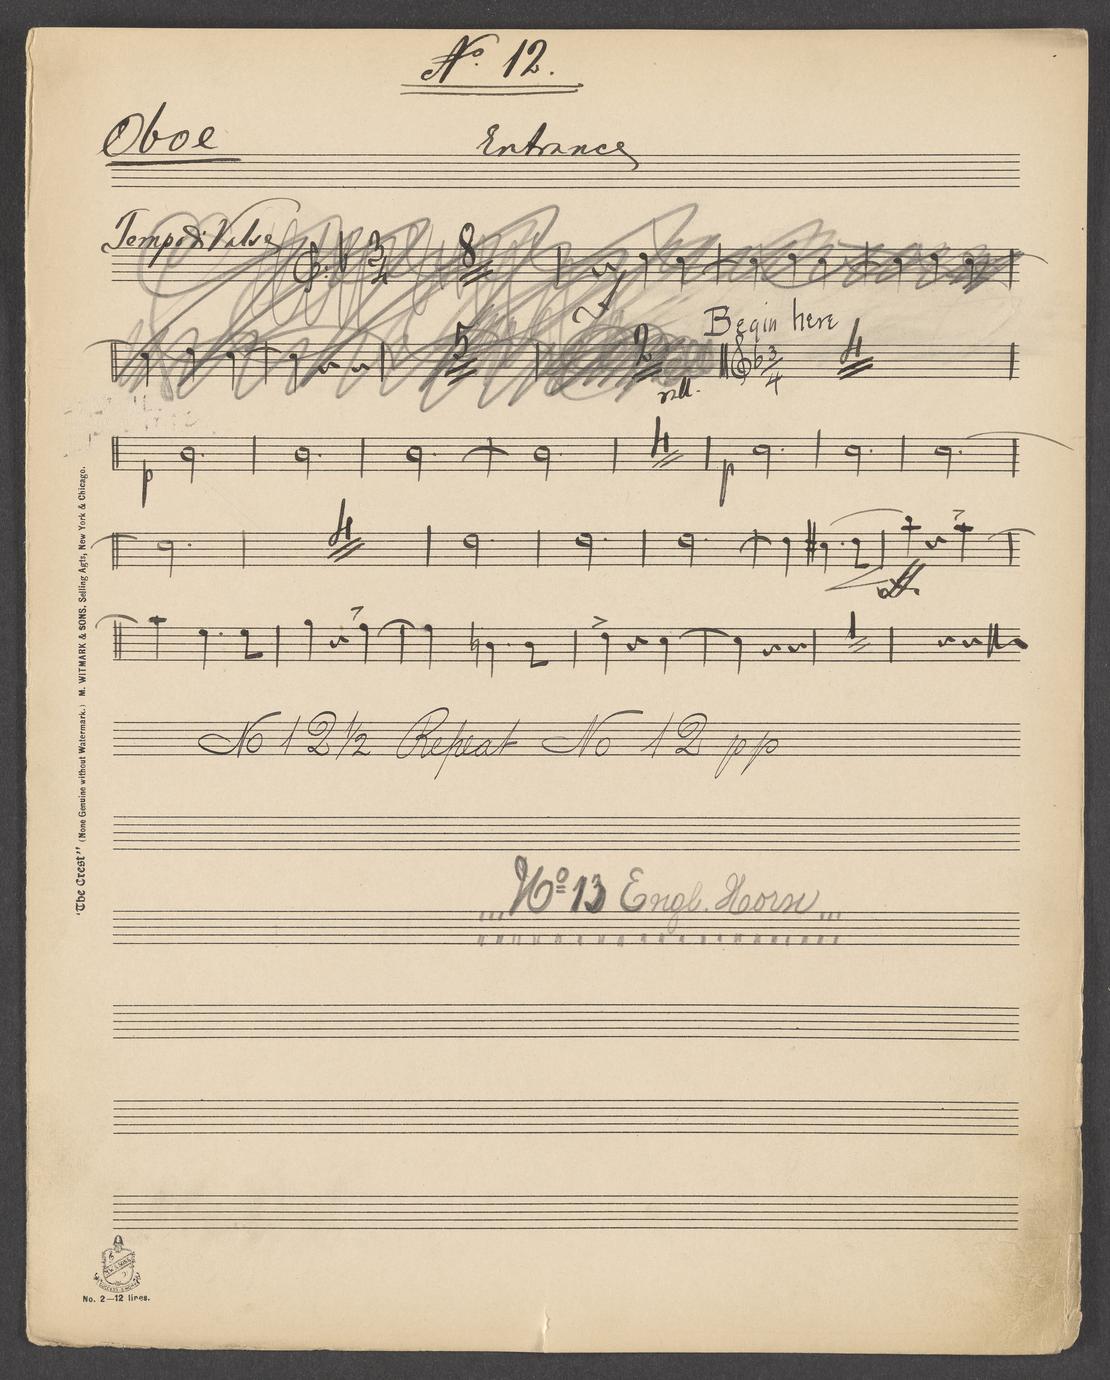 No. 12.
Oboe
Entrance
Tempo di Valse
3 4 8
f
Begin here
5 2 3 4 4
rall.
p 4 p
4
ff.
1
No 12 1/2 Repeat No 12 pp
No 13 Engl. Horn
"The Crest" (None Genuine without Watermark.) M. WITMARK & SONS, Selling Agts, New York & Chicago.
No. 2—12 lines.